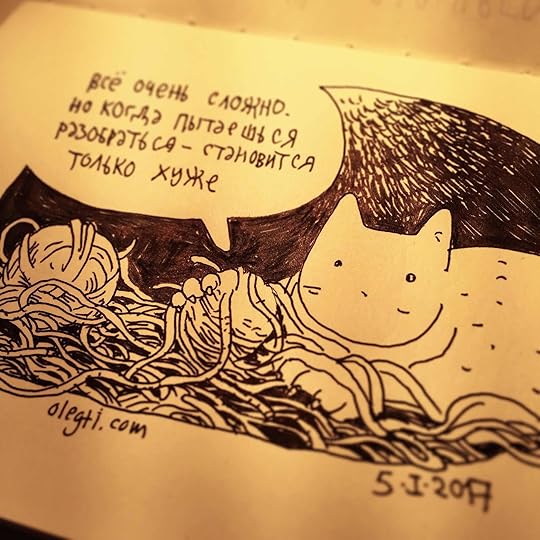 всё очень сложно.
но когда пытаешься
разобраться – становится
только хуже
olegti.com
5·I·2017